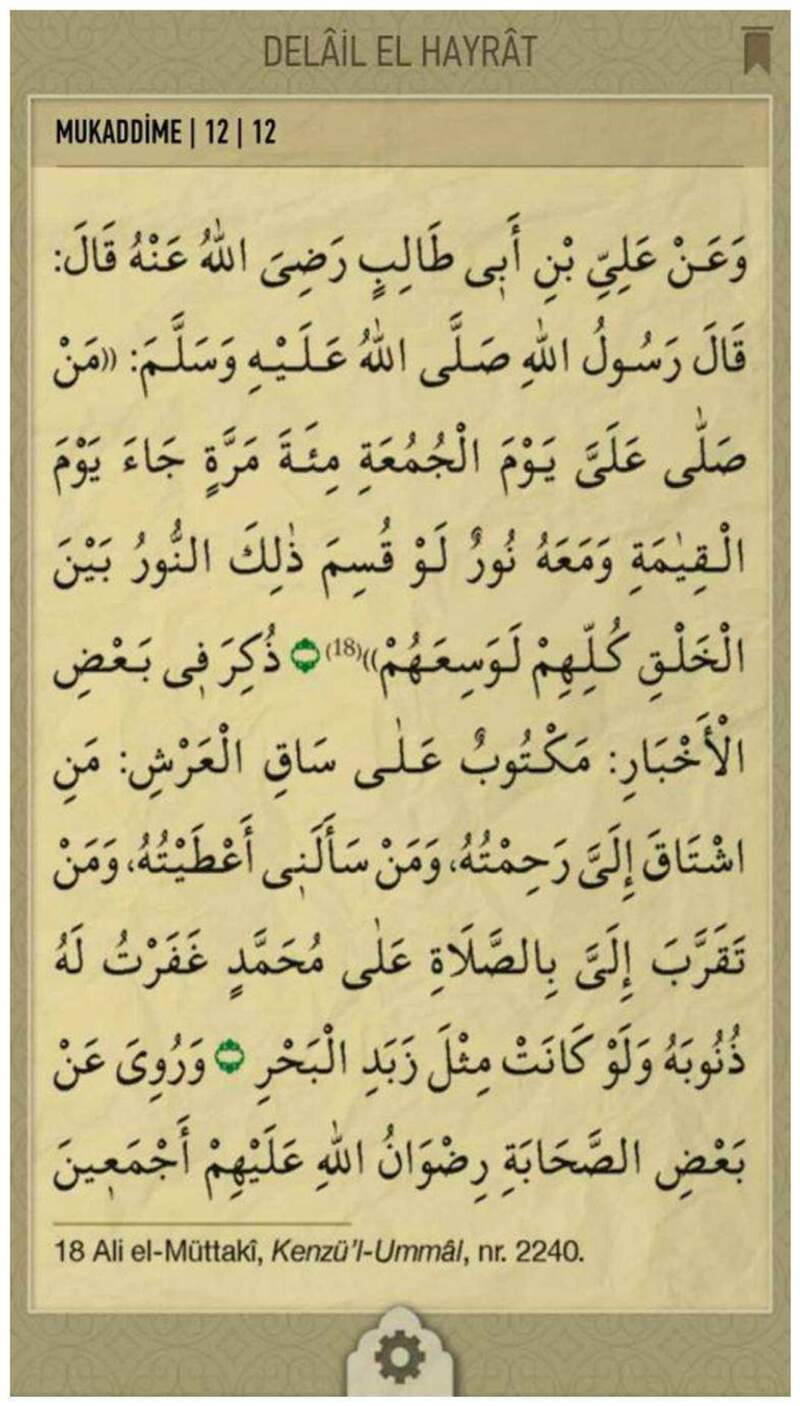 DELÂİL EL HAYRÂT
MUKADDİME | 12 | 12
وَعَنْ عَلِيِّ بْنِ أَبِى طَالِبٍ رَضِىَ اللهُ عَنْهُ قَالَ:
قَالَ رَسُولُ اللهِ صَلَّى اللهُ عَلَيْهِ وَسَلَّمَ: «مَنْ
صَلّٰى عَلَىَّ يَوْمَ الْجُمُعَةِ مِئَةَ مَرَّةٍ جَاءَ يَوْمَ
الْقِيٰمَةِ وَمَعَهُ نُورٌ لَوْ قُسِمَ ذٰلِكَ النُّورُ بَيْنَ
الْخَلْقِ كُلِّهِمْ لَوَسِعَهُمْ»(18) ذُكِرَ فِى بَعْضِ
الْأَخْبَارِ: مَكْتُوبٌ عَلٰى سَاقِ الْعَرْشِ: مَنِ
اشْتَاقَ إِلَىَّ رَحِمْتُهُ، وَمَنْ سَأَلَنِى أَعْطَيْتُهُ، وَمَنْ
تَقَرَّبَ إِلَىَّ بِالصَّلَاةِ عَلٰى مُحَمَّدٍ غَفَرْتُ لَهُ
ذُنُوبَهُ وَلَوْ كَانَتْ مِثْلَ زَبَدِ الْبَحْرِ وَرُوِىَ عَنْ
بَعْضِ الصَّحَابَةِ رِضْوَانُ اللهِ عَلَيْهِمْ أَجْمَعِينَ
18 Ali el-Müttakî, Kenzü'l-Ummâl, nr. 2240.